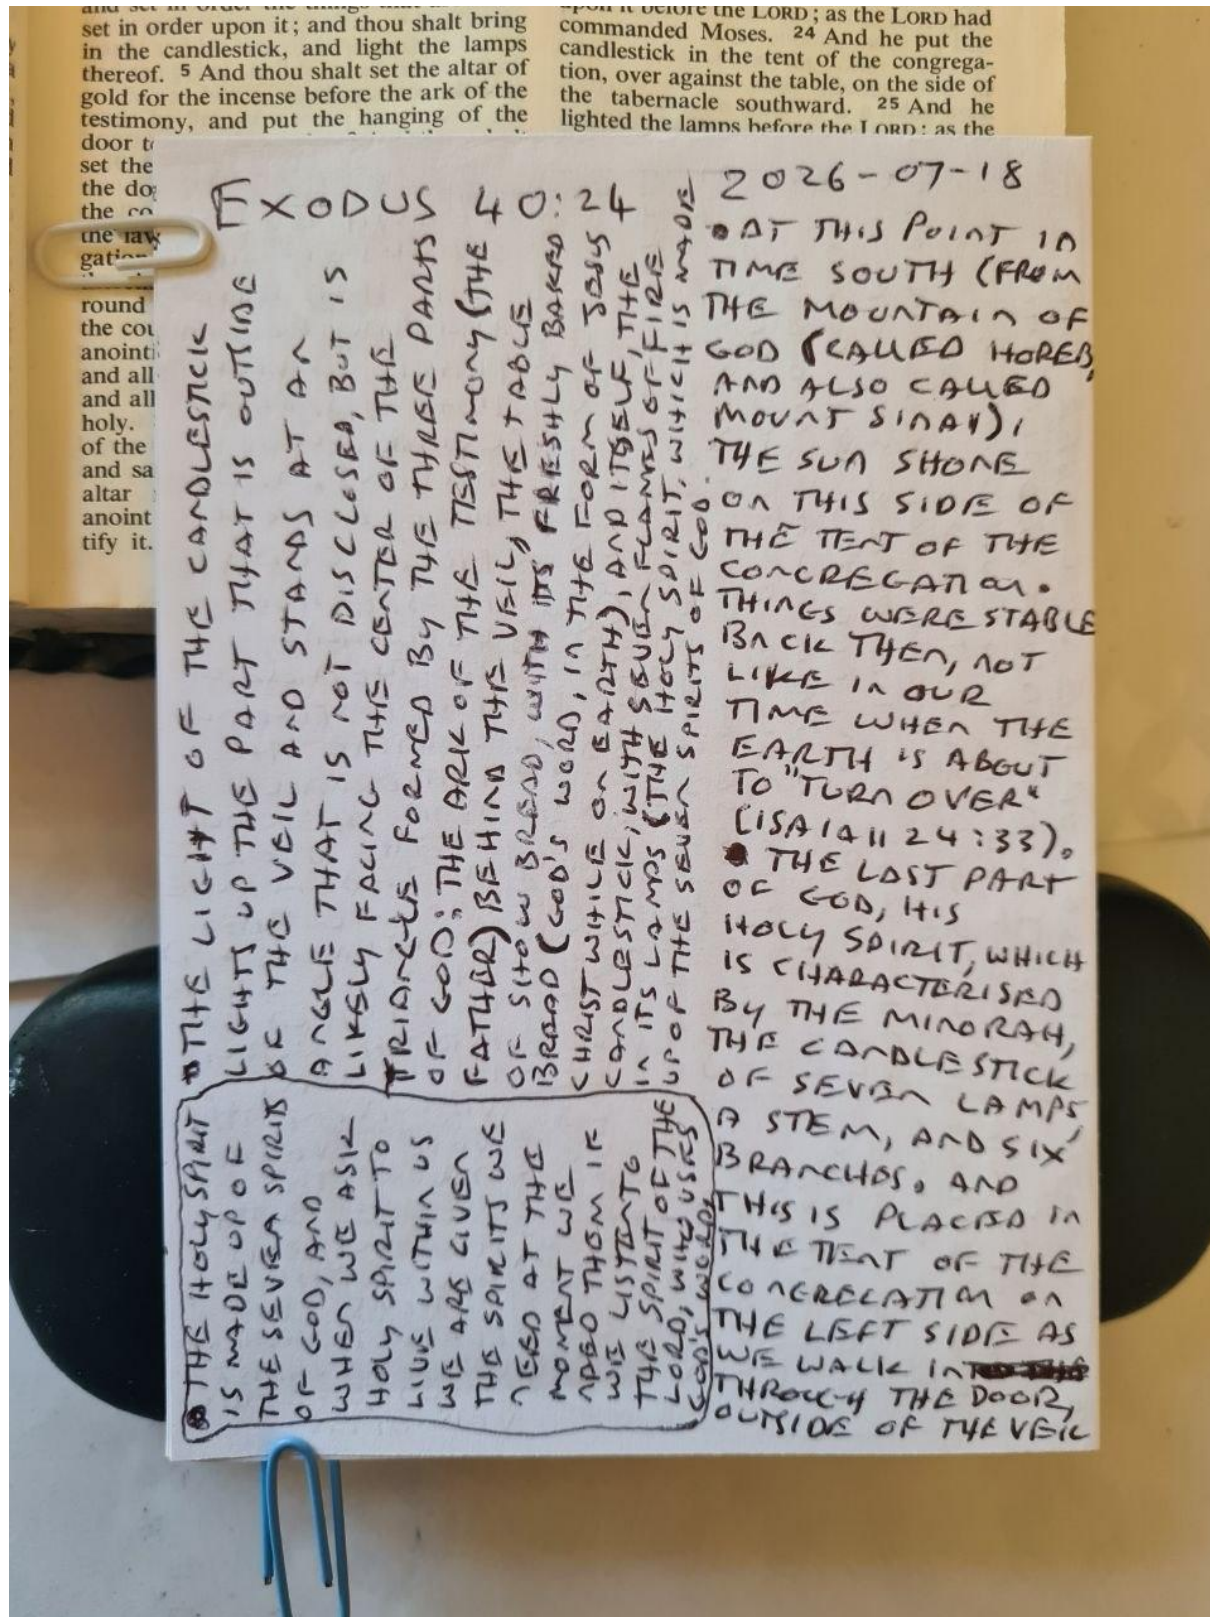 set in order upon it; and thou shalt bring
in the candlestick, and light the lamps
thereof. 5 And thou shalt set the altar of
gold for the incense before the ark of the
testimony, and put the hanging of the
door
set the
the
the
the
round
the
and all
and all
holy.
of the
and
altar
anoint
tify it.
upon it before the LORD; as the LORD had
commanded Moses. 24 And he put the
candlestick in the tent of the congrega-
tion, over against the table, on the side of
the tabernacle southward. 25 And he
lighted the lamps before the LORD: as the
EXODUS 40:24
2026-07-18
• AT THIS POINT IN
TIME SOUTH (FROM
THE MOUNTAIN OF
GOD (CALLED HOREB,
AND ALSO CALLED
MOUNT SINAY),
THE SUN SHONE
ON THIS SIDE OF
THE TENT OF THE
CONGREGATION.
THINGS WERE STABLE
BACK THEN, NOT
LIKE IN OUR
TIME WHEN THE
EARTH IS ABOUT
TO "TURN OVER"
(ISAIAH 24:33).
• THE LAST PART
OF GOD, HIS
HOLY SPIRIT, WHICH
IS CHARACTERISED
BY THE MINORAH,
THE CANDLESTICK
OF SEVEN LAMPS,
A STEM, AND SIX
BRANCHES. AND
THIS IS PLACED IN
THE TENT OF THE
CONGREGATION ON
THE LEFT SIDE AS
WE WALK IN
THROUGH THE DOOR,
OUTSIDE OF THE VEIL
• THE LIGHT OF THE CANDLESTICK
LIGHTS UP THE PART THAT IS OUTSIDE
OF THE VEIL AND STANDS AT AN
ANGLE THAT IS NOT DISCLOSED, BUT IS
LIKELY FACING THE CENTER OF THE
TRIANGLE FORMED BY THE THREE PARTS
OF GOD: THE ARK OF THE TESTIMONY (THE
FATHER) BEHIND THE VEIL, THE TABLE
OF SHOW BREAD, WITH ITS FRESHLY BAKED
BREAD (GOD'S WORD, IN THE FORM OF JESUS
CHRIST WHILE ON EARTH), AND ITSELF, THE
CANDLESTICK, WITH SEVEN FLAMES OF FIRE
IN ITS LAMPS (THE HOLY SPIRIT, WHICH IS MADE
UP OF THE SEVEN SPIRITS OF GOD.
• THE HOLY SPIRIT
IS MADE UP OF
THE SEVEN SPIRITS
OF GOD, AND
WHEN WE ASK
HOLY SPIRIT TO
LIVE WITHIN US
WE ARE GIVEN
THE SPIRITS WE
NEED AT THE
MOMENT WE
NEED THEM IF
WE LISTEN TO
THE SPIRIT OF THE
LORD, WHO USES
GOD'S WORD.